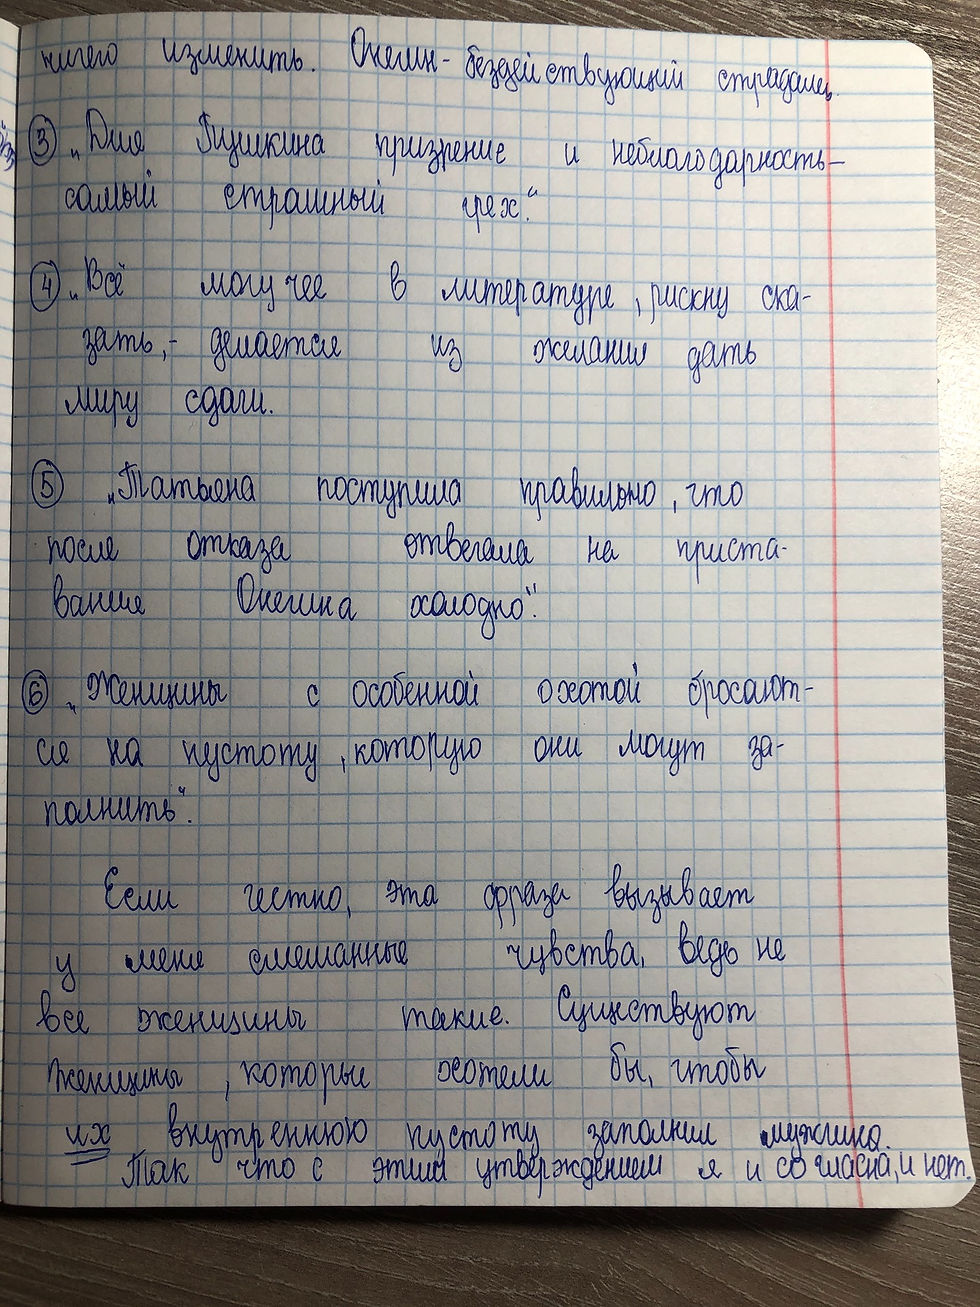 ничего изменить. Онегин - бездействующий страдалец.
③ „Для Пушкина призрение и неблагодарность—
самый страшный грех."
④ „Всё могучее в литературе, рискну ска-
зать,- делается из желания дать
миру сдачи.
⑤ „Татьяна поступила правильно, что
после отказа отвечала на приста-
вание Онегина холодно".
⑥ „Женщины с особенной охотой бросают-
ся на пустоту, которую они могут за-
полнить".
Если честно, эта фраза вызывает
у меня смешанные чувства, ведь не
все женщины такие. Существуют
женщины, которые хотели бы, чтобы
их внутреннюю пустоту заполнил мужчина.
Так что с этим утверждением я и согласна, и нет.